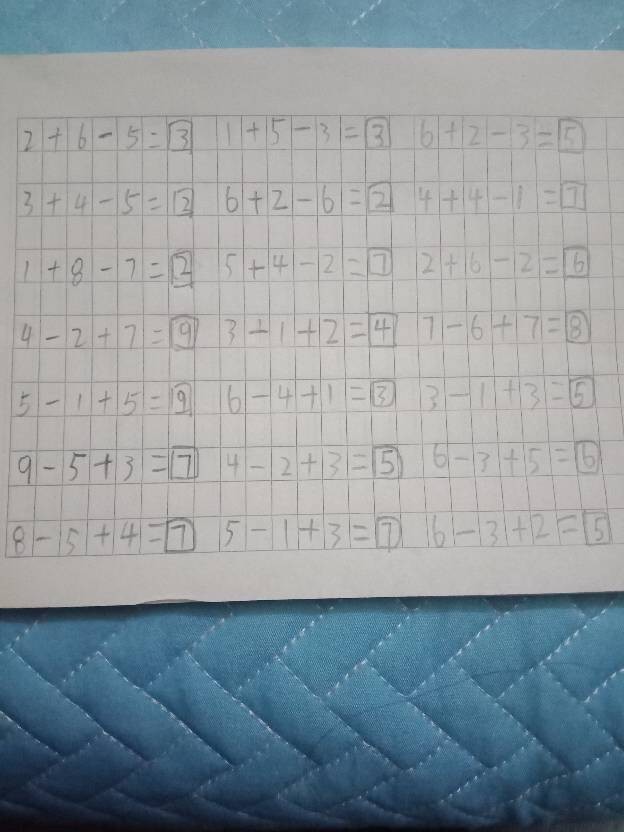 2+6-5=3 1+5-3=3 6+2-3=5
3+4-5=2 6+2-6=2 4+4-1=7
1+8-7=2 5+4-2=7 2+6-2=6
4-2+7=9 3-1+2=4 7-6+7=8
5-1+5=9 6-4+1=3 3-1+3=5
9-5+3=7 4-2+3=5 6-3+5=6
8-5+4=7 5-1+3=7 6-3+2=5